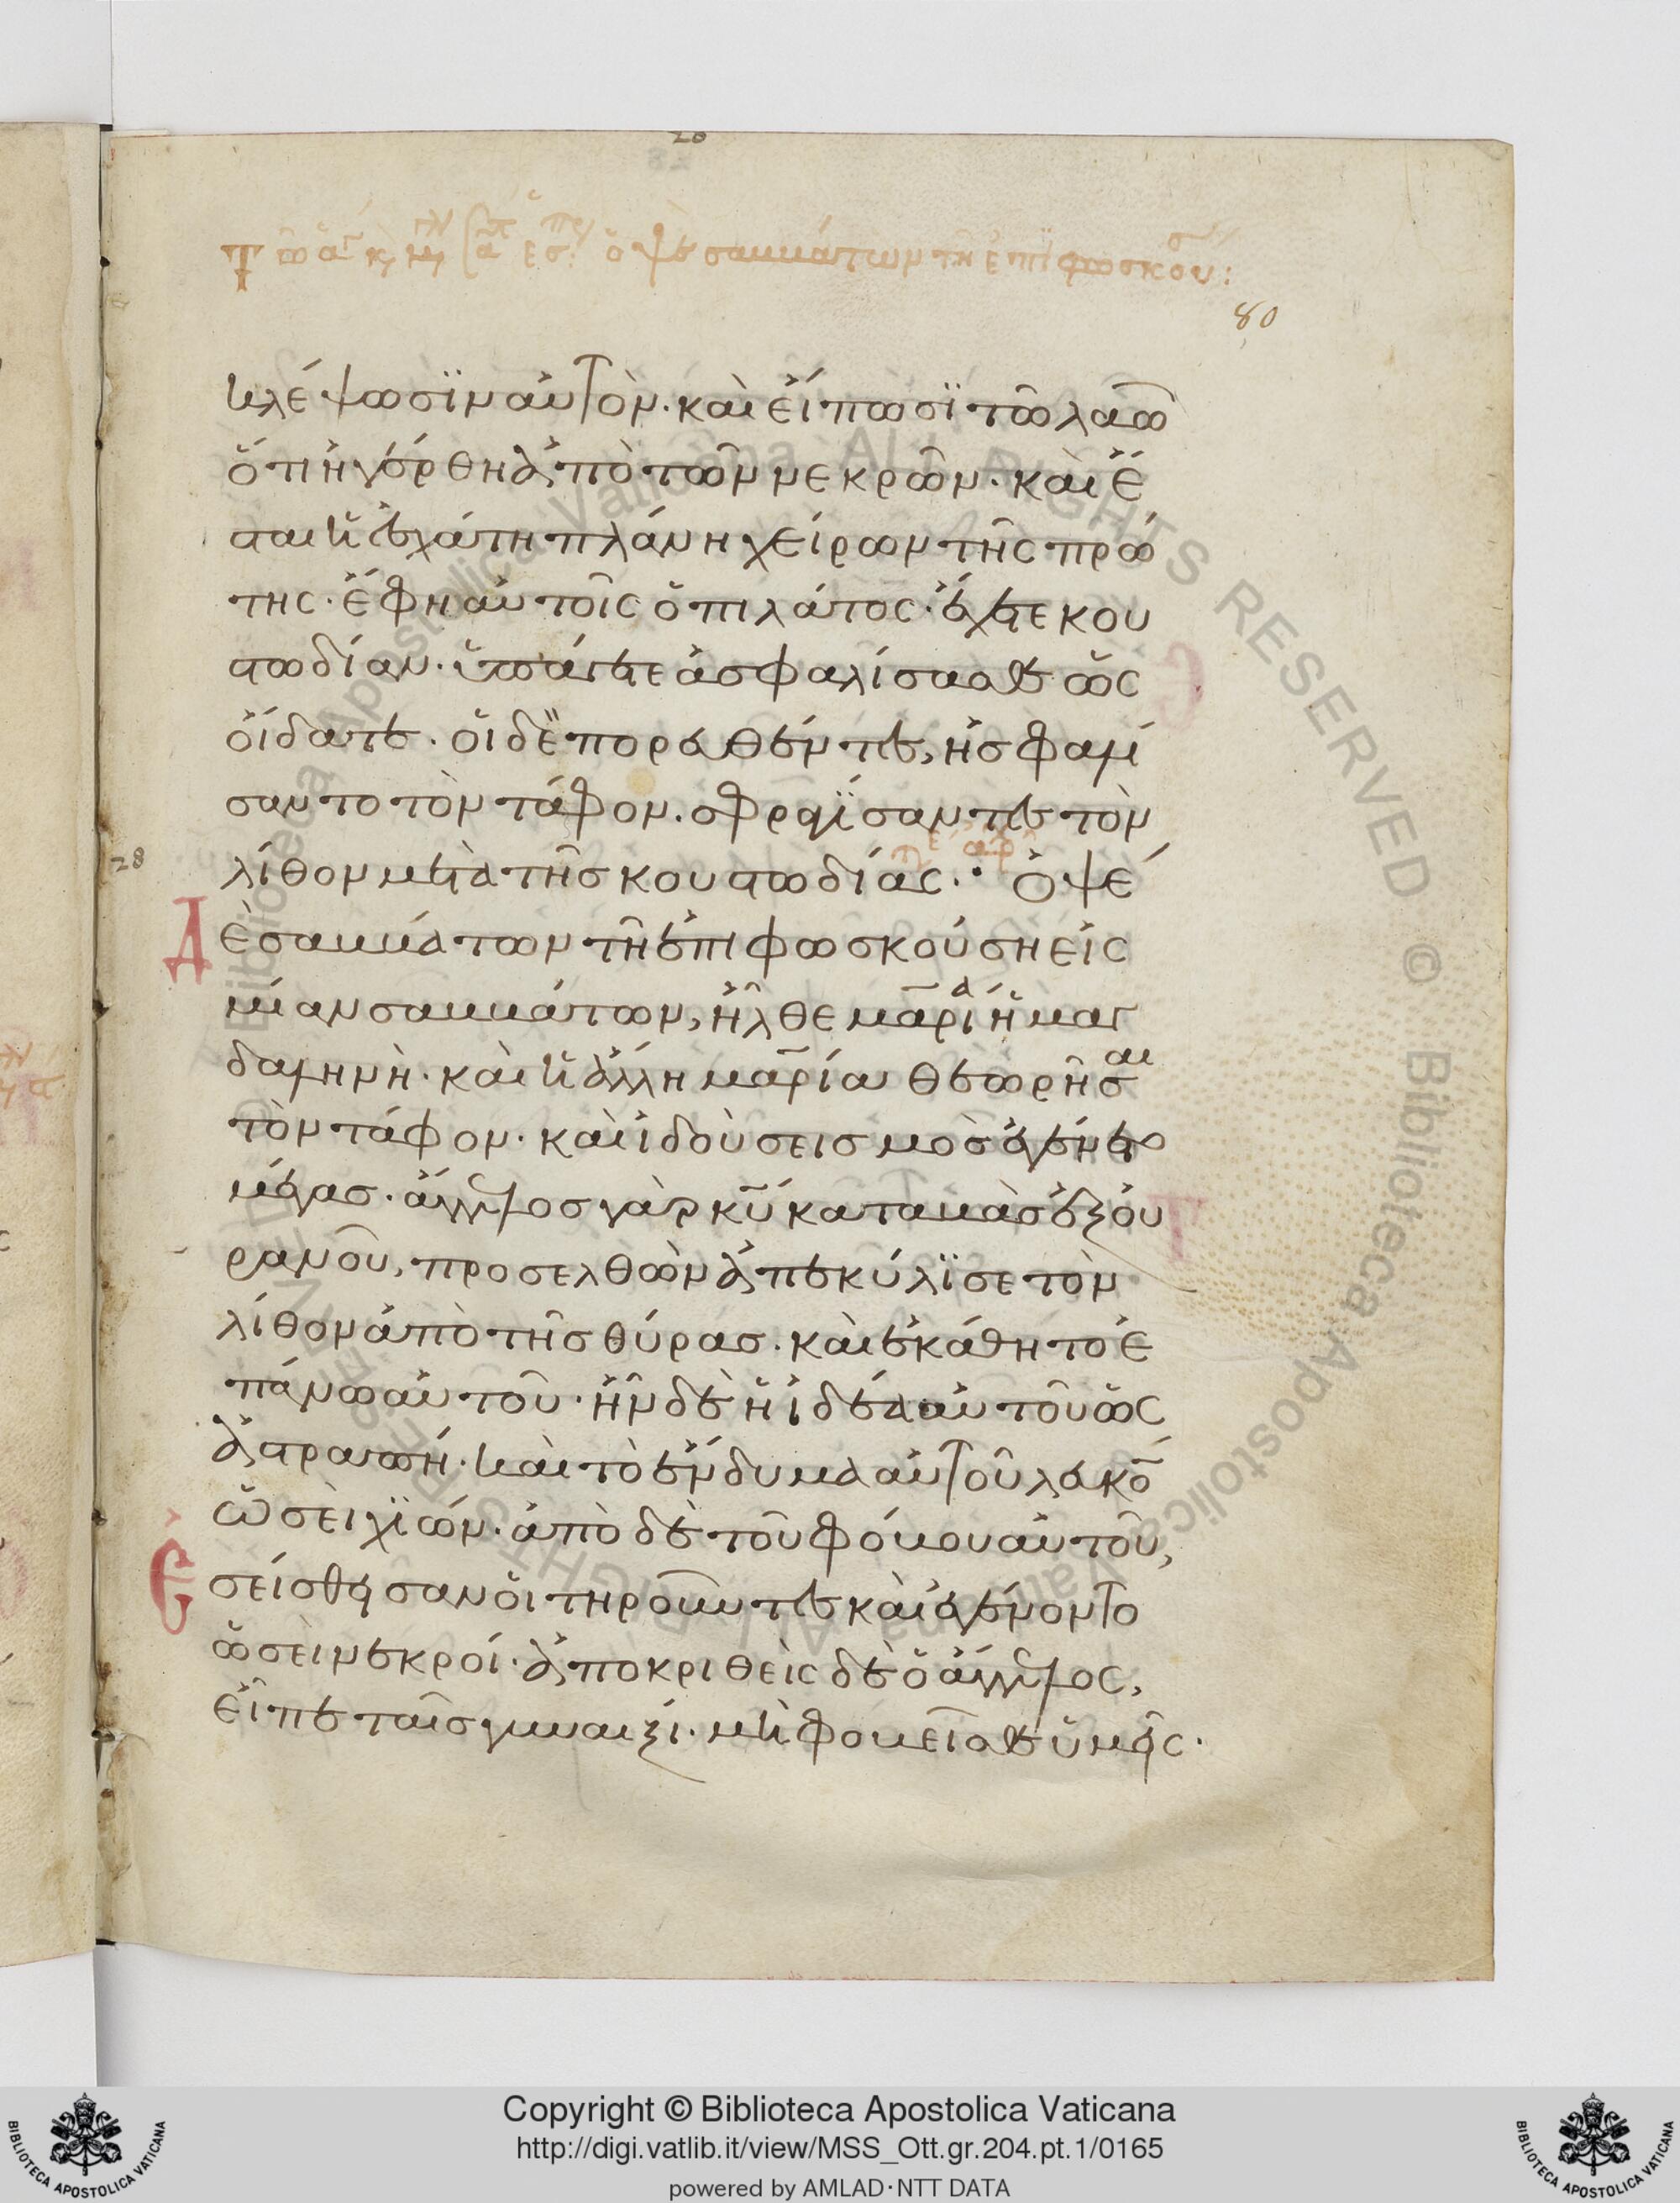 80
κλέψωσϊν αὐτὸν· καὶ εἴπωσϊ τῶ λαῶ
ὅτι ἠγέρθη ἀπὸ τῶν νεκρῶν· καὶ ἔ
σται ἡ ἐσχάτη πλάνη χείρων τῆς πρώ
της· ἔφη αὐτοῖς ὁ πιλάτος· ἔχετε κου
στωδίαν· ὑπάγετε ἀσφαλίσασθε ὡς
οἴδατε· οἱ δὲ πορευθέντες, ἠσφαλί
σαντο τὸν τάφον· σφραγϊσαντες τὸν
28
λίθον μετὰ τῆς κουστωδίας·· Ὀψὲ
Δὲ σαββάτων τῆ ἐπιφωσκούση εἰς
μίαν σαββάτων, ἦλθε μαρία ἡ μαγ
δαληνὴ· καὶ ἡ ἄλλη μαρία θεωρῆσαι
τὸν τάφον· καὶ ἰδοὺ σεισμοσ ἐγένετο
μέγασ· ἄγγελοσ γὰρ κυ καταβὰσ ἐξ οὐ
ρανοῦ, προσελθὼν ἀπεκύλϊσε τὸν
λίθον ἀπὸ τῆσ θύρασ· καὶ ἐκάθητο ἐ
πάνω αὐτοῦ· ἦν δὲ ἡ ἰδέα αὐτοῦ ὡς
ἀστραπή· καὶ τὸ ἔνδυμα αὐτοῦ λευκὸ
ὡσεὶ χϊών· ἀπὸ δὲ τοῦ φόβου αὐτοῦ,
Ἐσείσθησαν οἱ τηροῦντες καὶ ἐγένοντο
ὡσεὶ νεκροί· ἀποκριθεὶς δὲ ὁ ἄγγελος,
εἶπε ταῖσ γυναιξί· μὴ φοβεῖσθε ὑμεῖς·
Copyright © Biblioteca Apostolica Vaticana
http://digi.vatlib.it/view/MSS_Ott.gr.204.pt.1/0165
powered by AMLAD·NTT DATA